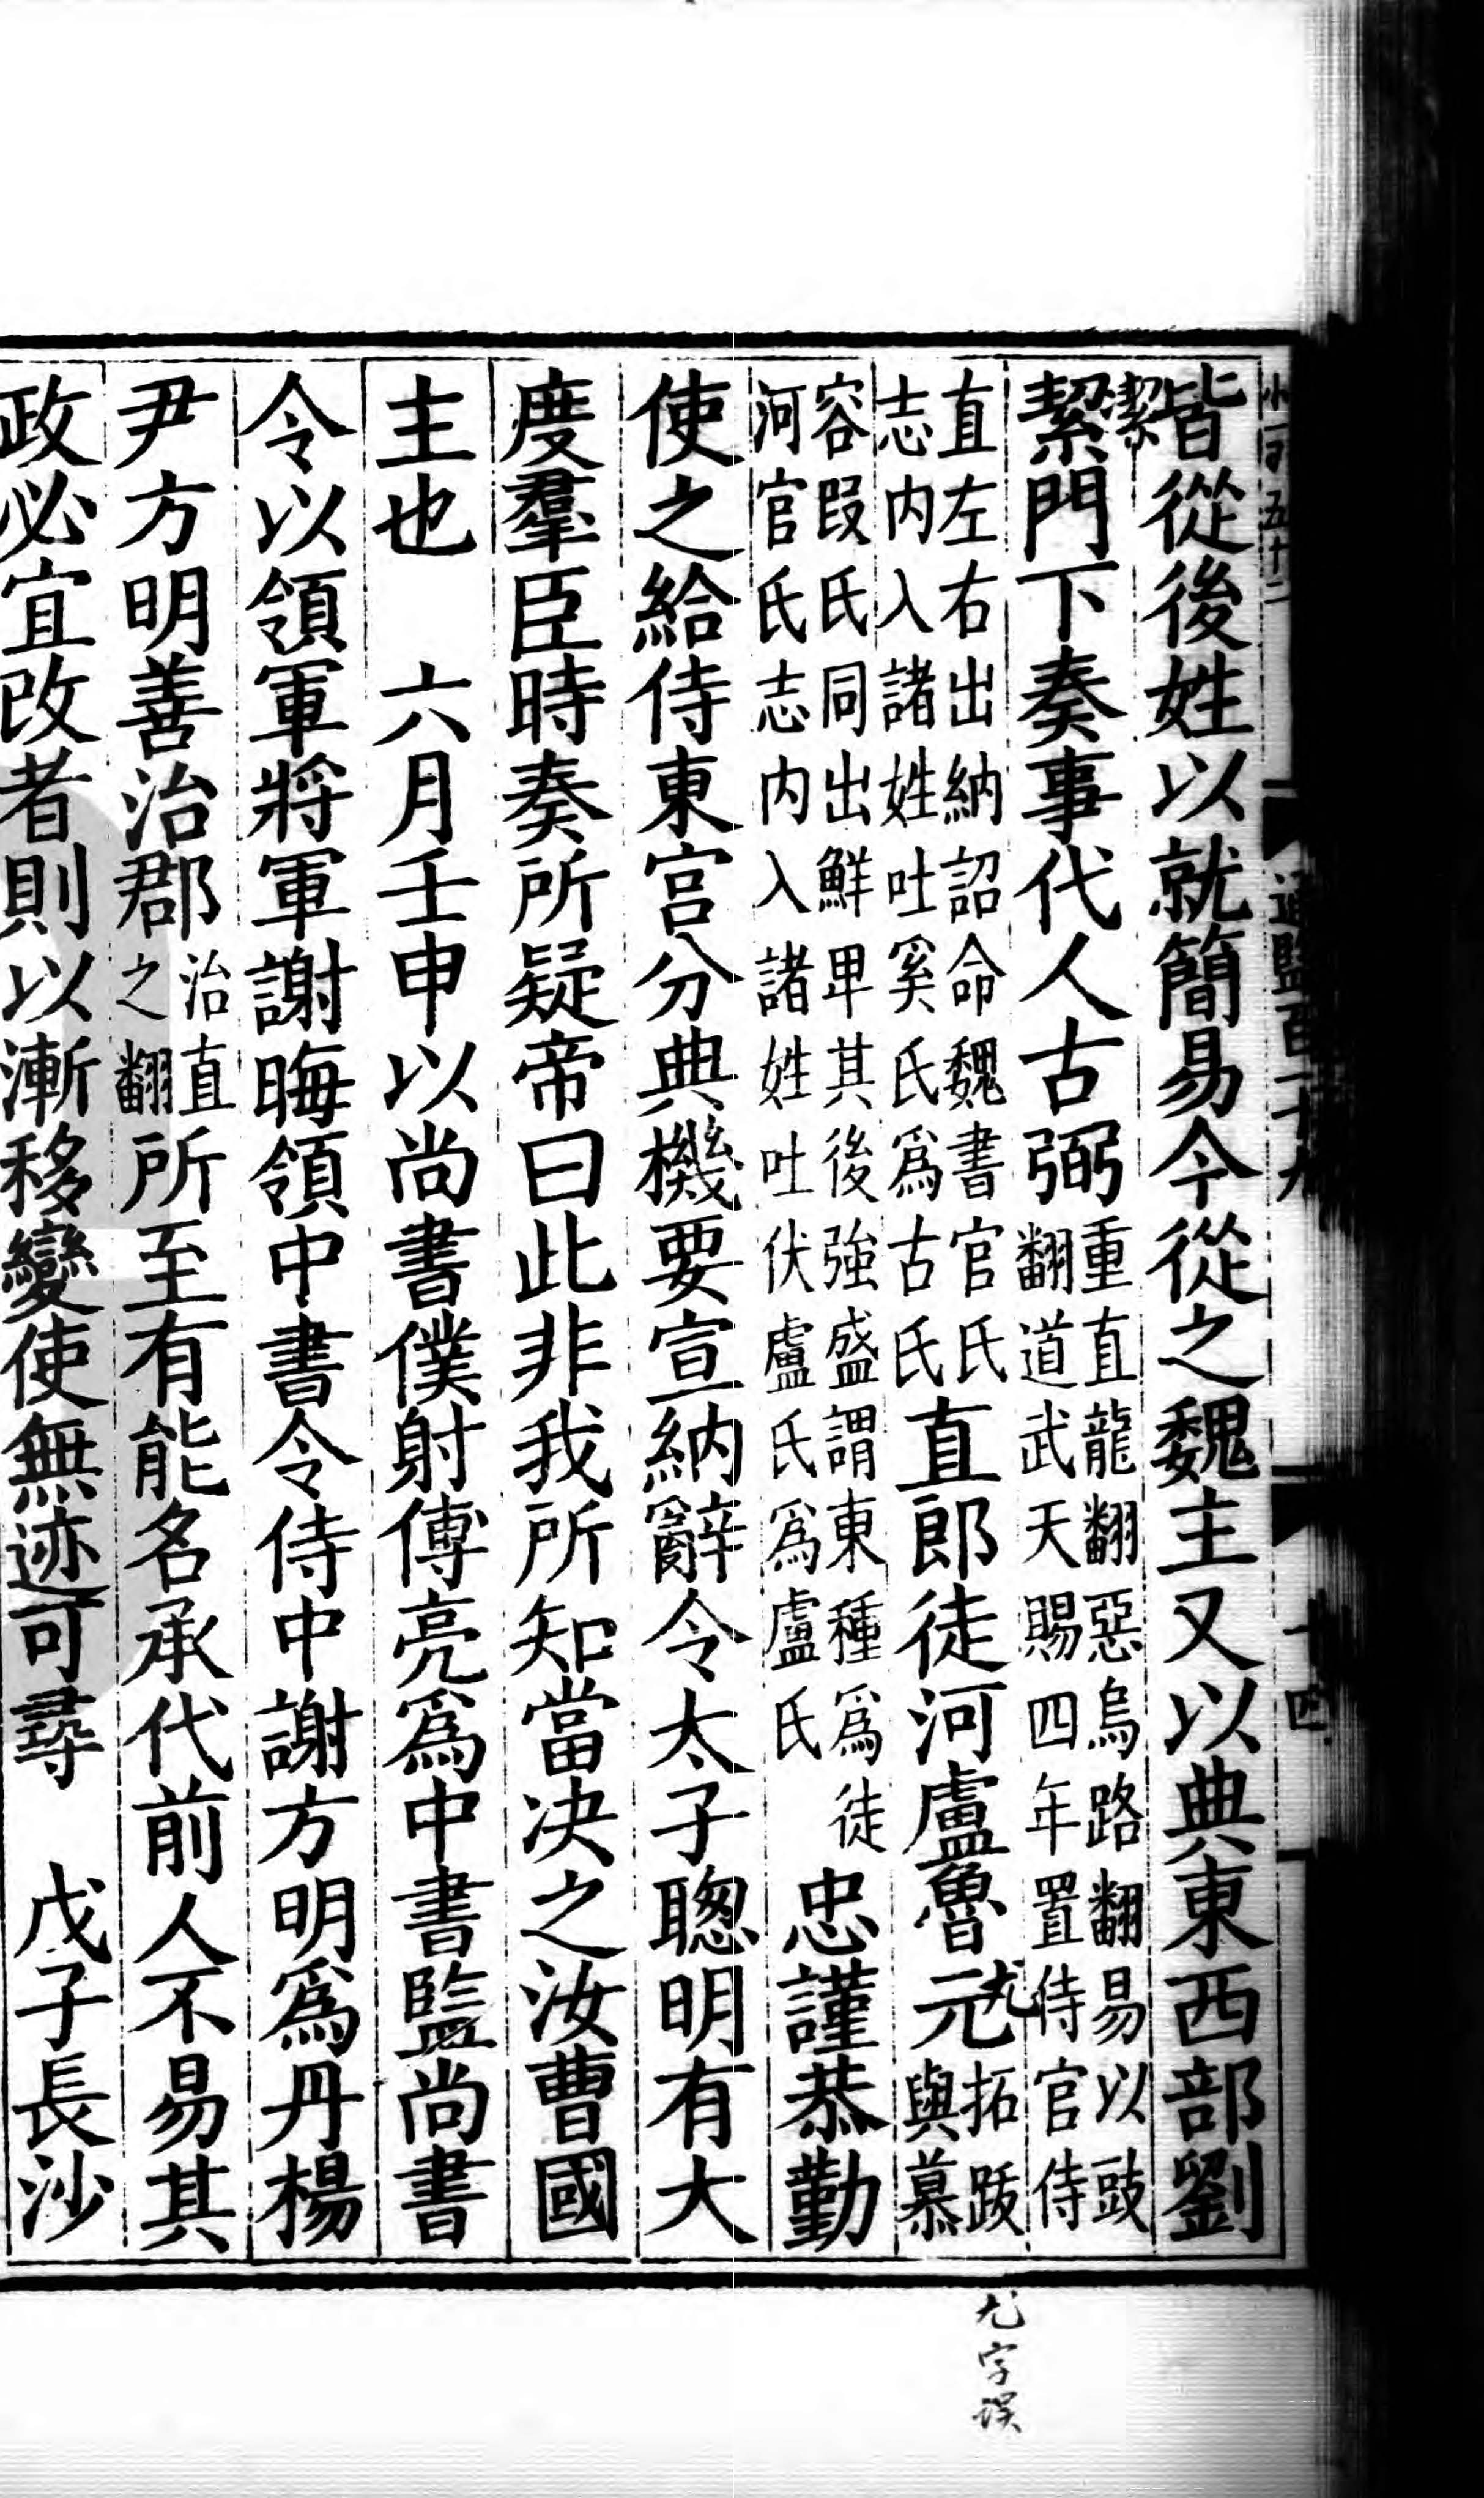 皆從後姓以就簡易今從之魏主又以典東西部劉
絜門下奏事代人古弼重直龍翻惡烏路翻易以豉翻道武天賜四年置侍官侍
直左右出納詔命魏書官氏志内入諸姓吐奚氏爲古氏直郎徒河盧魯元拓跋與慕
容叚氏同出鮮卑其後強盛謂東種爲徒河官氏志内入諸姓吐伏盧氏爲盧氏忠謹恭勤
使之給侍東宫分典機要宣納辭令太子聰明有大
度羣臣時奏所疑帝曰此非我所知當决之汝曹國
主也　六月壬申以尚書僕射傅亮爲中書監尚書
令以領軍將軍謝晦領中書令侍中謝方明爲丹楊
尹方明善治郡治直之翻所至有能名承代前人不易其
政必宜改者則以漸移變使無迹可尋　戊子長沙
潔
尤
尤字誤
五十二
通鑑百一十九
十四